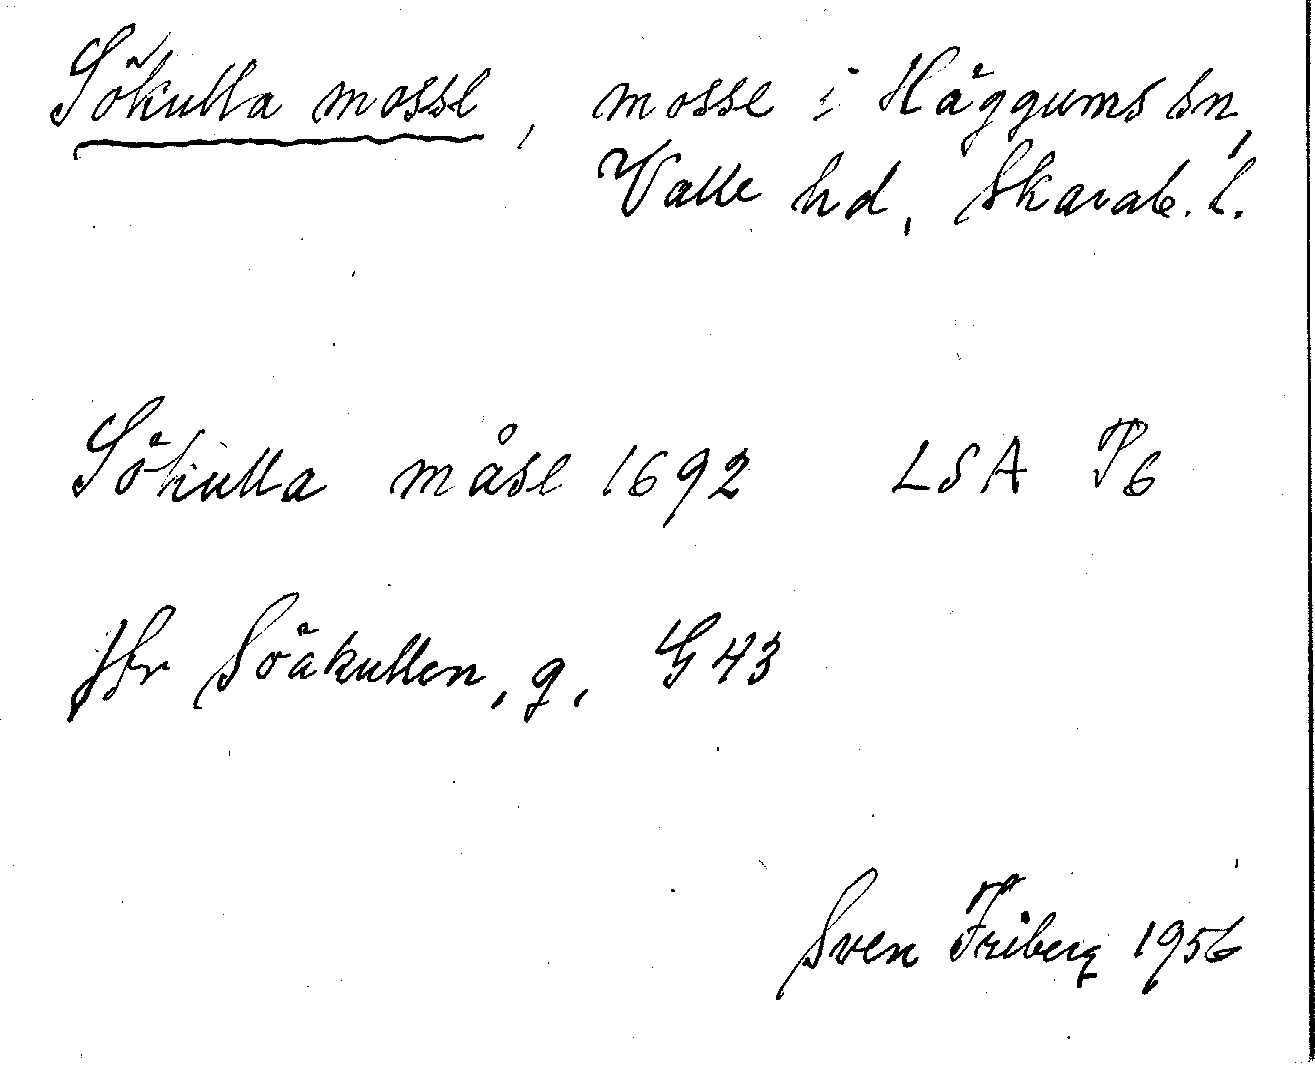 Sökulla mosse, mosse i Häggums sn,
Valle hd, Skarab. l.
Sökulla måse 1692 LSA P6
Jfr Söäkullen, g. G 43
Sven Friberg 1956